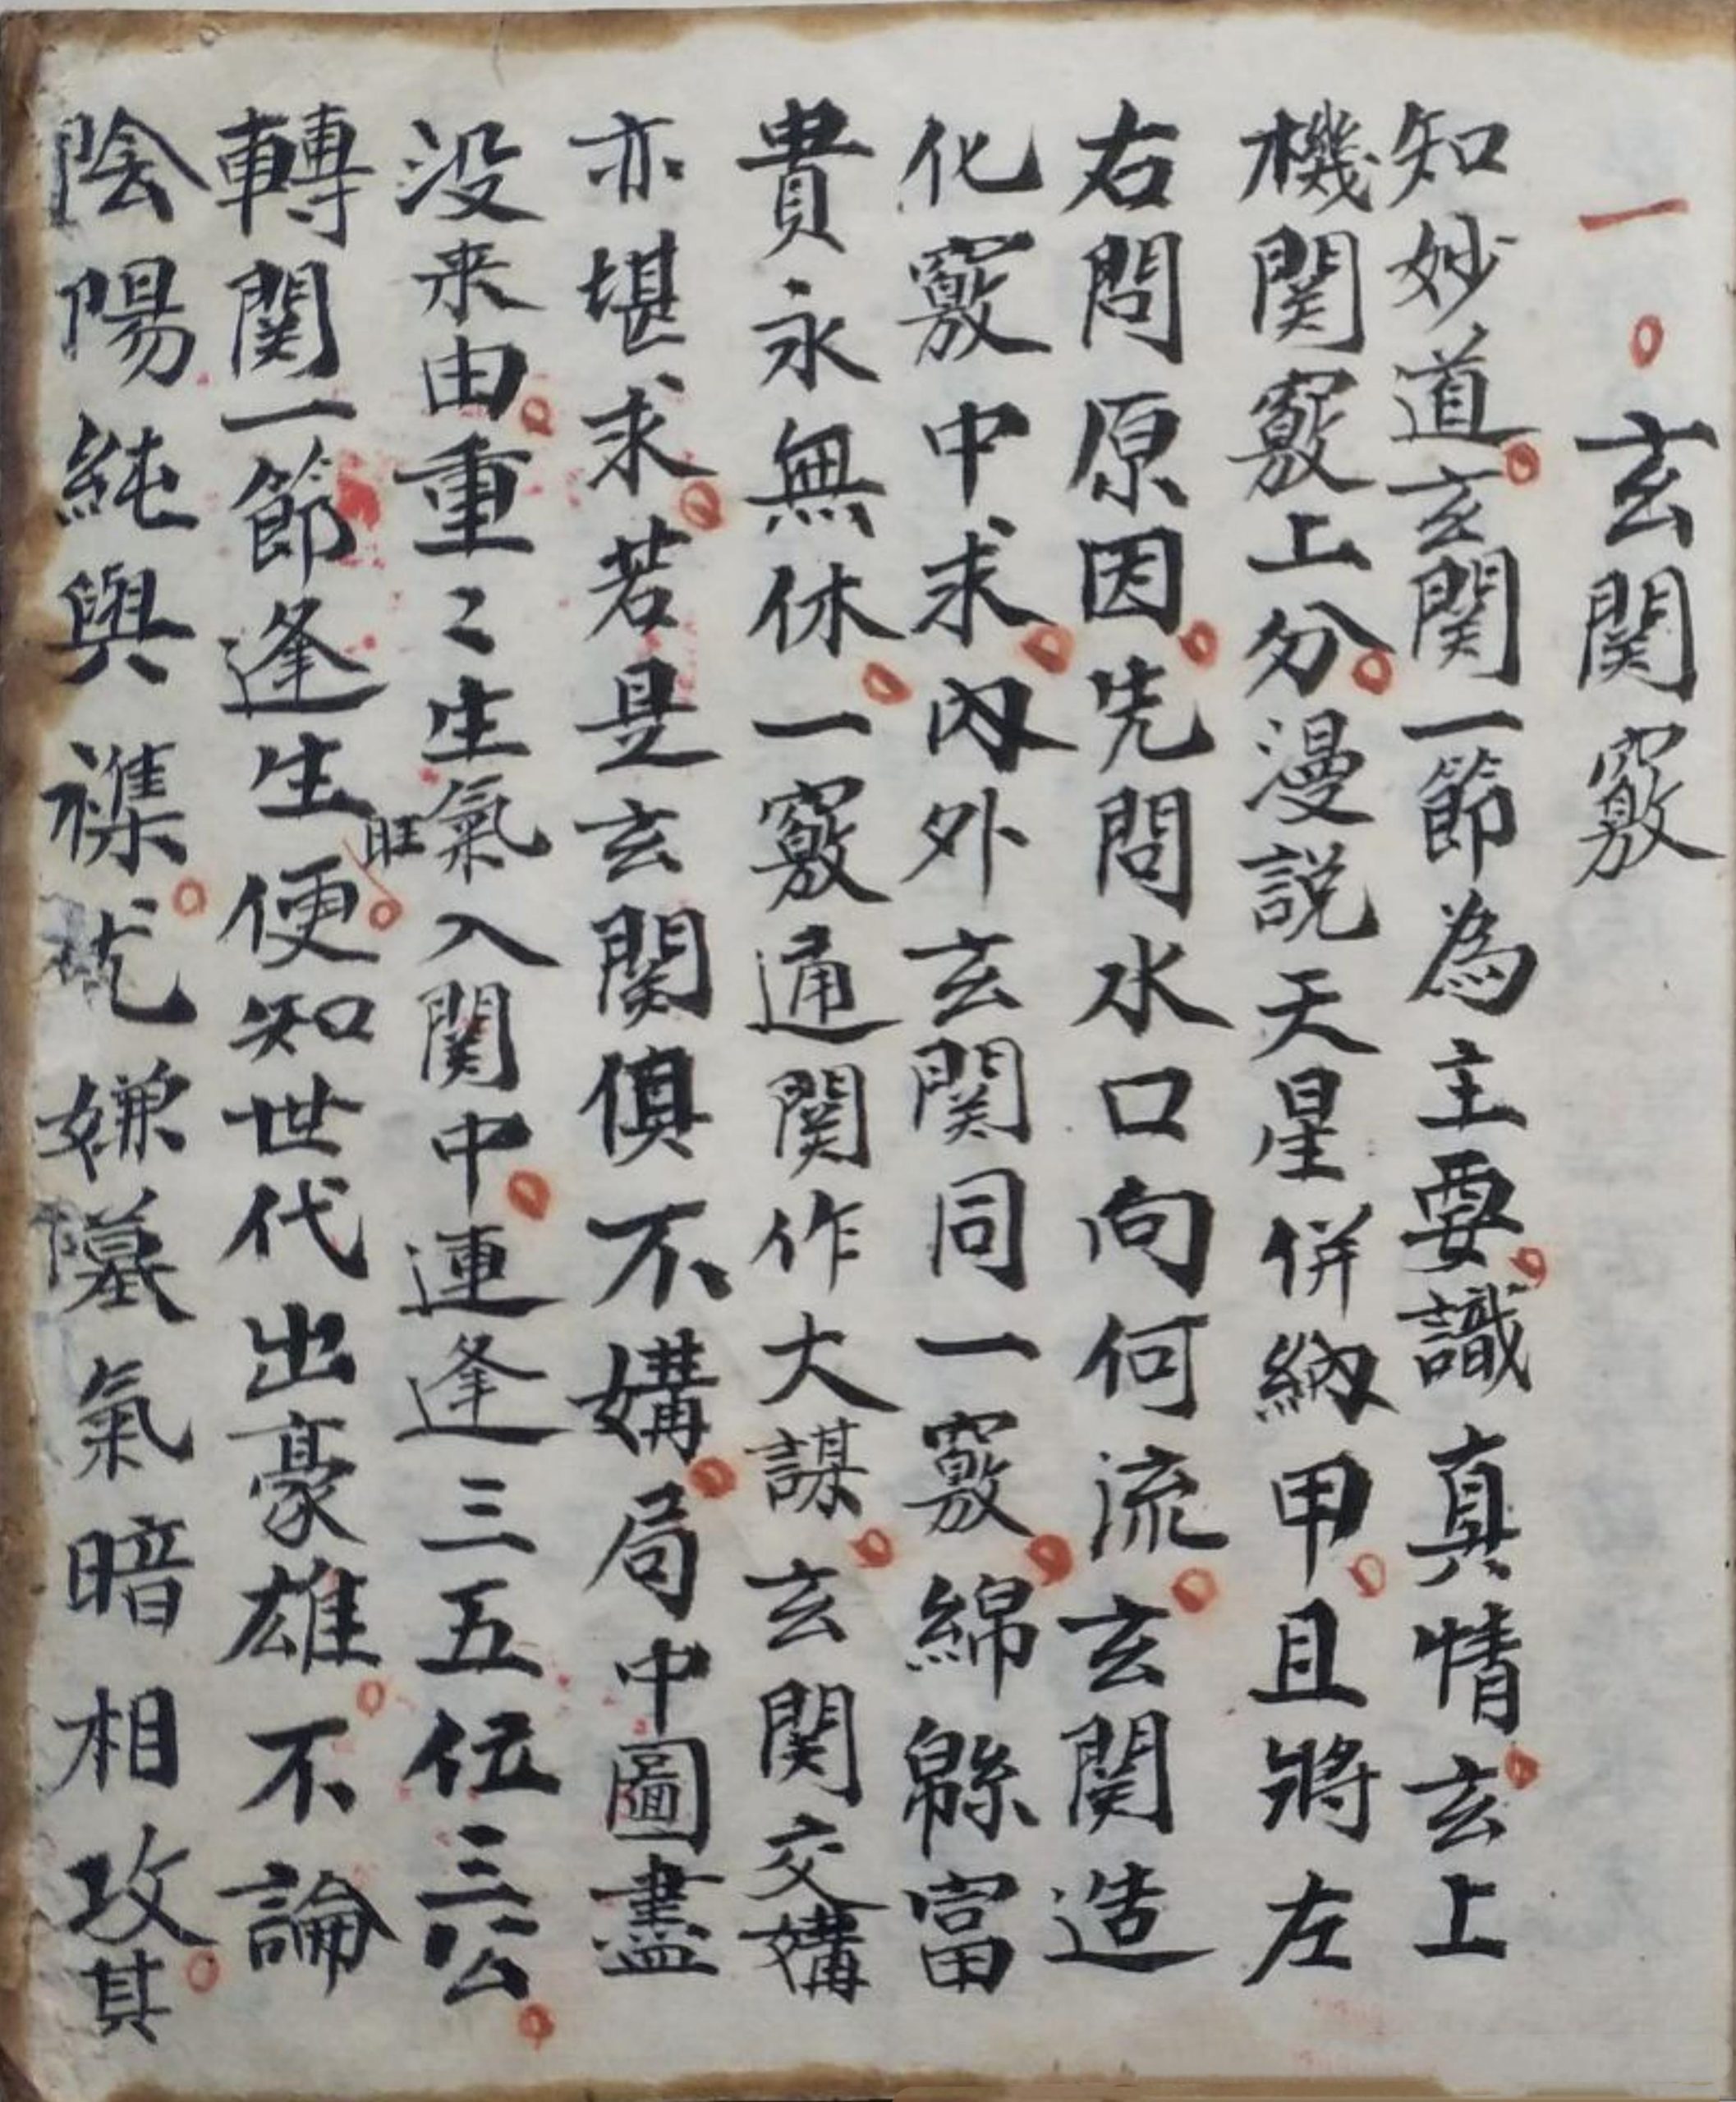 一○玄関竅
知妙道玄関一節為主要識真情玄上
機関竅上分漫説天星併納甲且將左
右問原因先問水口向何流玄関造
化竅中求内外玄関同一竅綿緜富
貴永無休一竅通関作大謀玄関交媾
亦堪求若是玄関俱不媾局中圖盡
没来由重〻生氣入関中連逢三五位三公
轉関一節逢生旺便知世代出豪雄不論
陰陽純與襍尤嫌墓氣暗相攻其